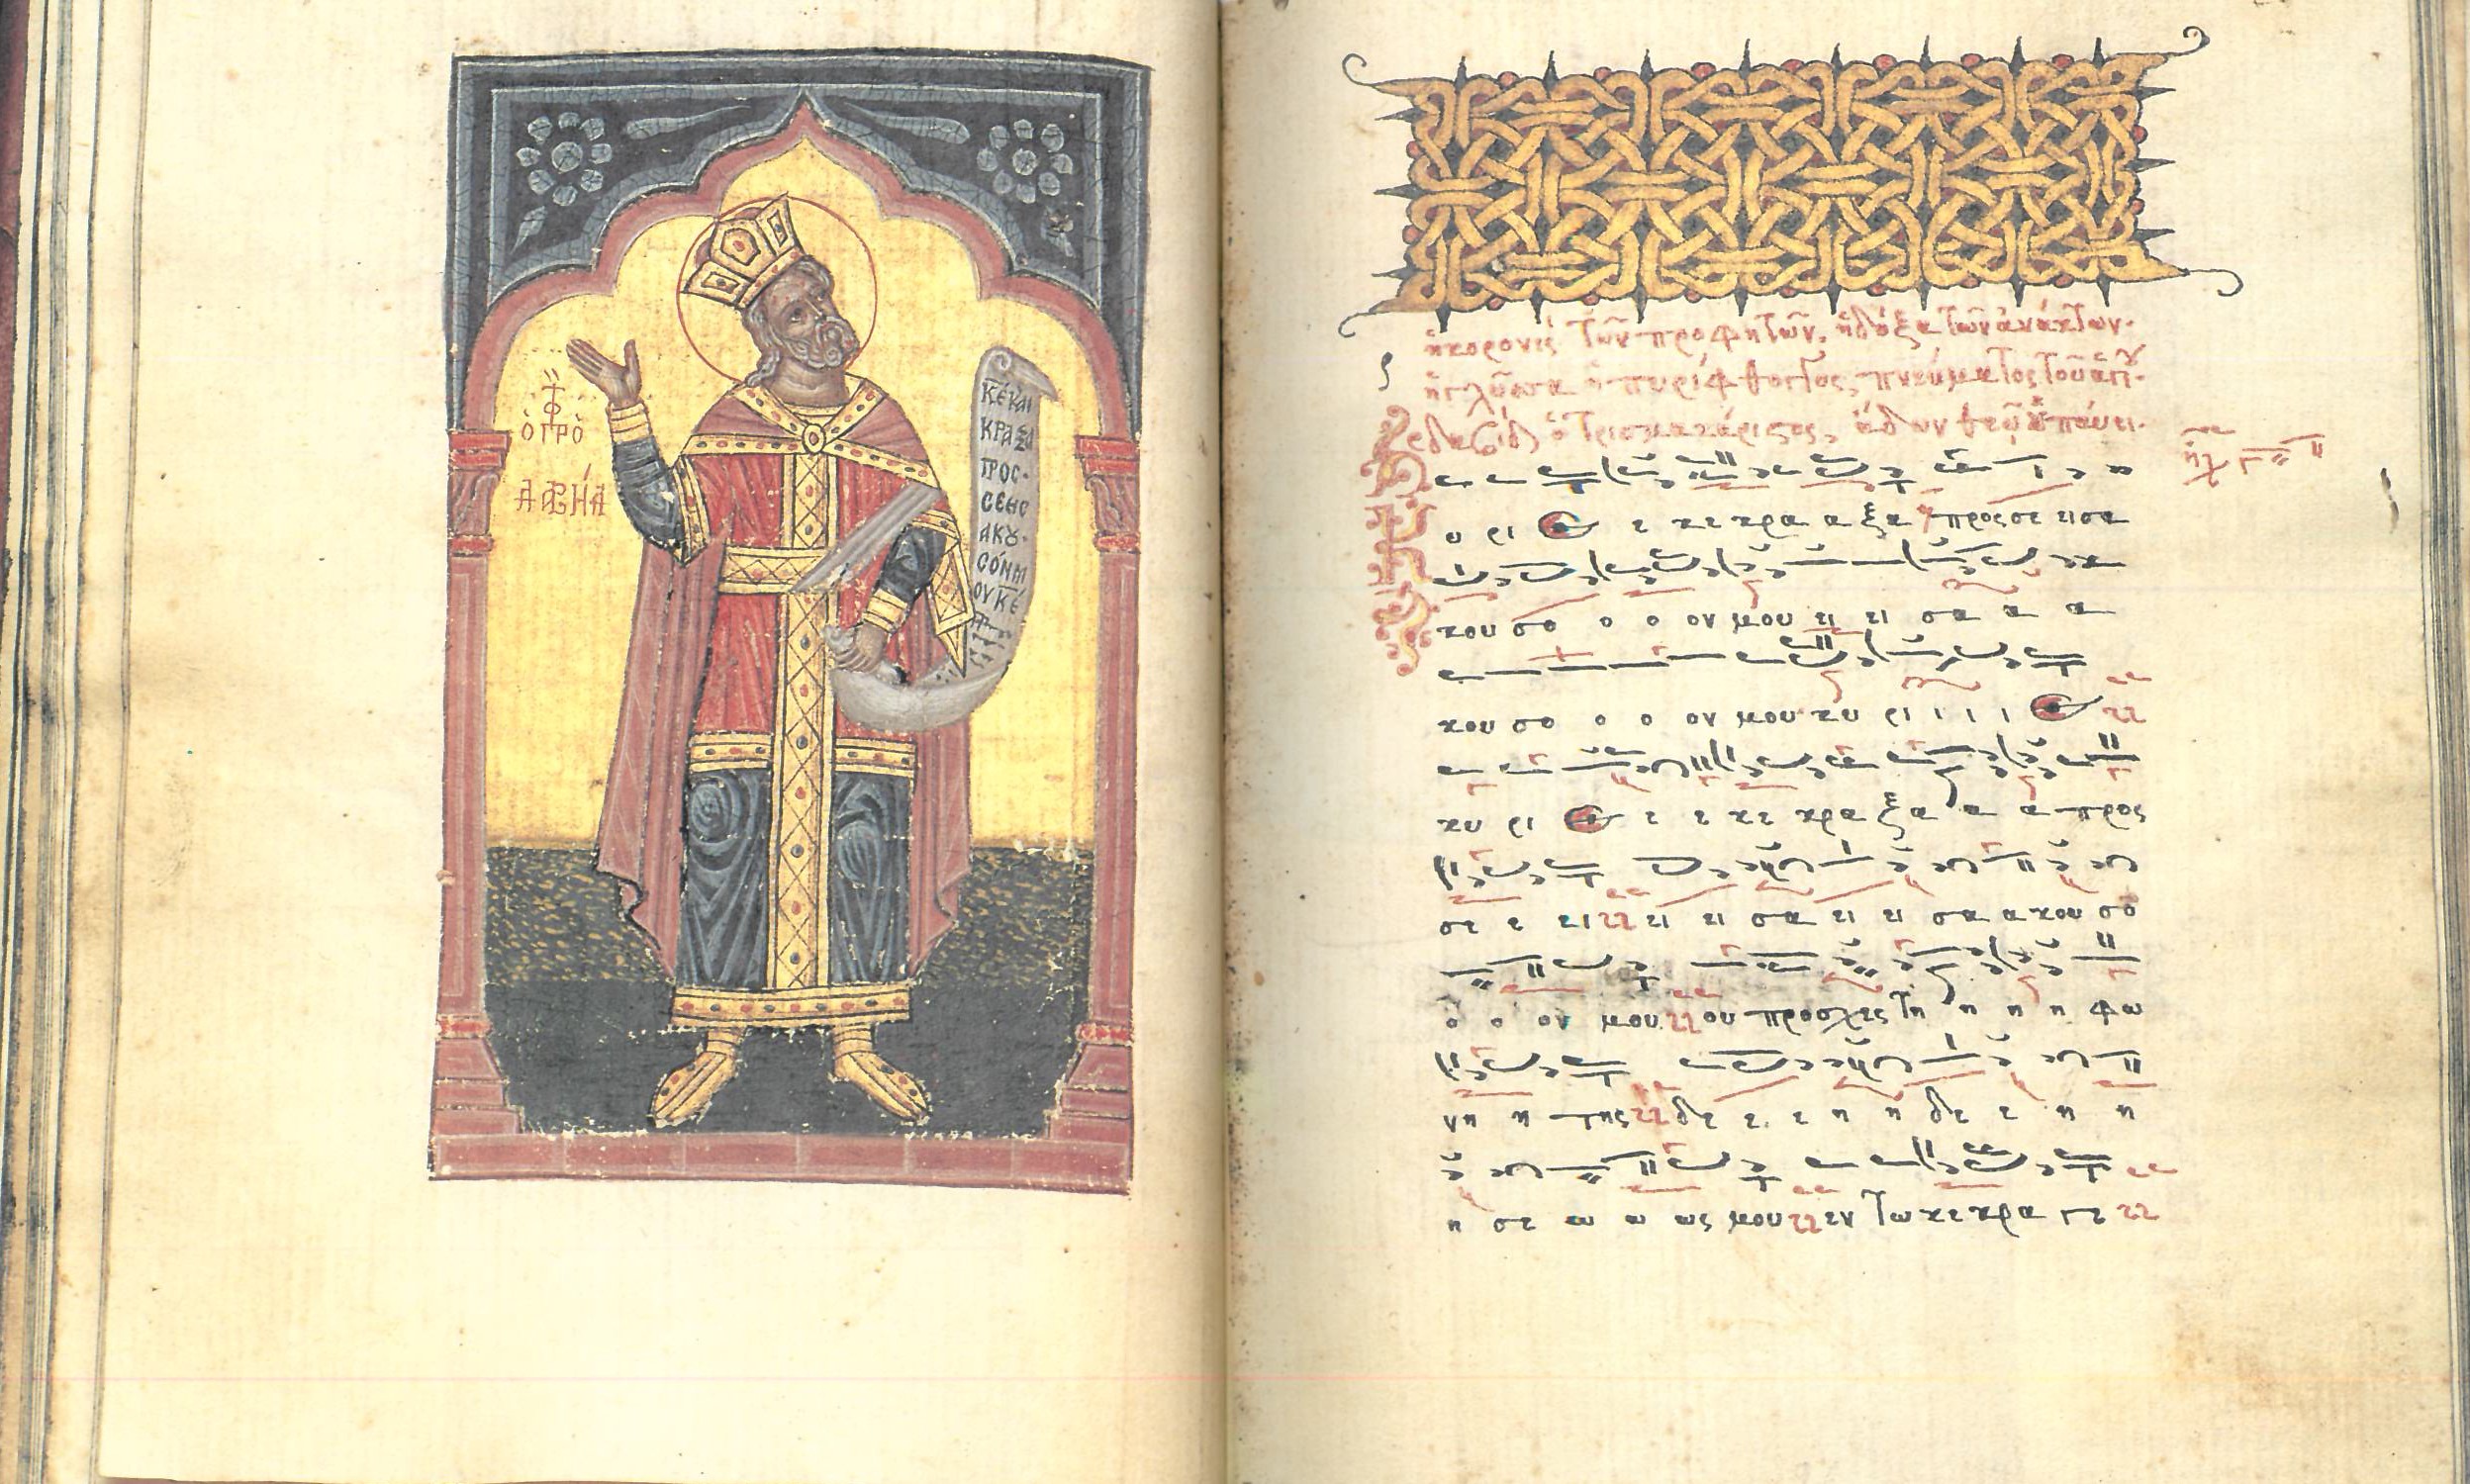 ὁ προ
φ
ΔΑΔ
Κ̅Ε ἐκέ
ΚΡΑΞΑ
ΠΡΟΣ·
ΣΕ ΕΙΣ
ΑΚΟΥ·
ΣΟΝ Μ
ΟΥ Κ̅Ε
ἡ κορονὶς τῶν προφητῶν, ἡ δόξα τῶν ἀνάκτων·
ἡ γλῶσσα ἡ πυρίφθογγος, πνεύματος τοῦ ἁγίου·
δα̅δ ὁ τρισμακάριστος, ᾄδων θεῷ
ἦχ
υ ρι ε ε κε κρα α ξα προς σε εισα
κου σο ο ο ον μου ει ει σα α α
κου σο ο ο ον μου κυ ρι ι ι ι ε
κυ ρι ε ε ε κε κρα ξα α α προς
σε ε ει ει ει σα ει ει σα α κου σο
ο ο ον μου ου προσχες τη η η η φω
νη η της δε ε ε η η δε ε η η
η σε ω ω ως μου εν τω κε κρα γε